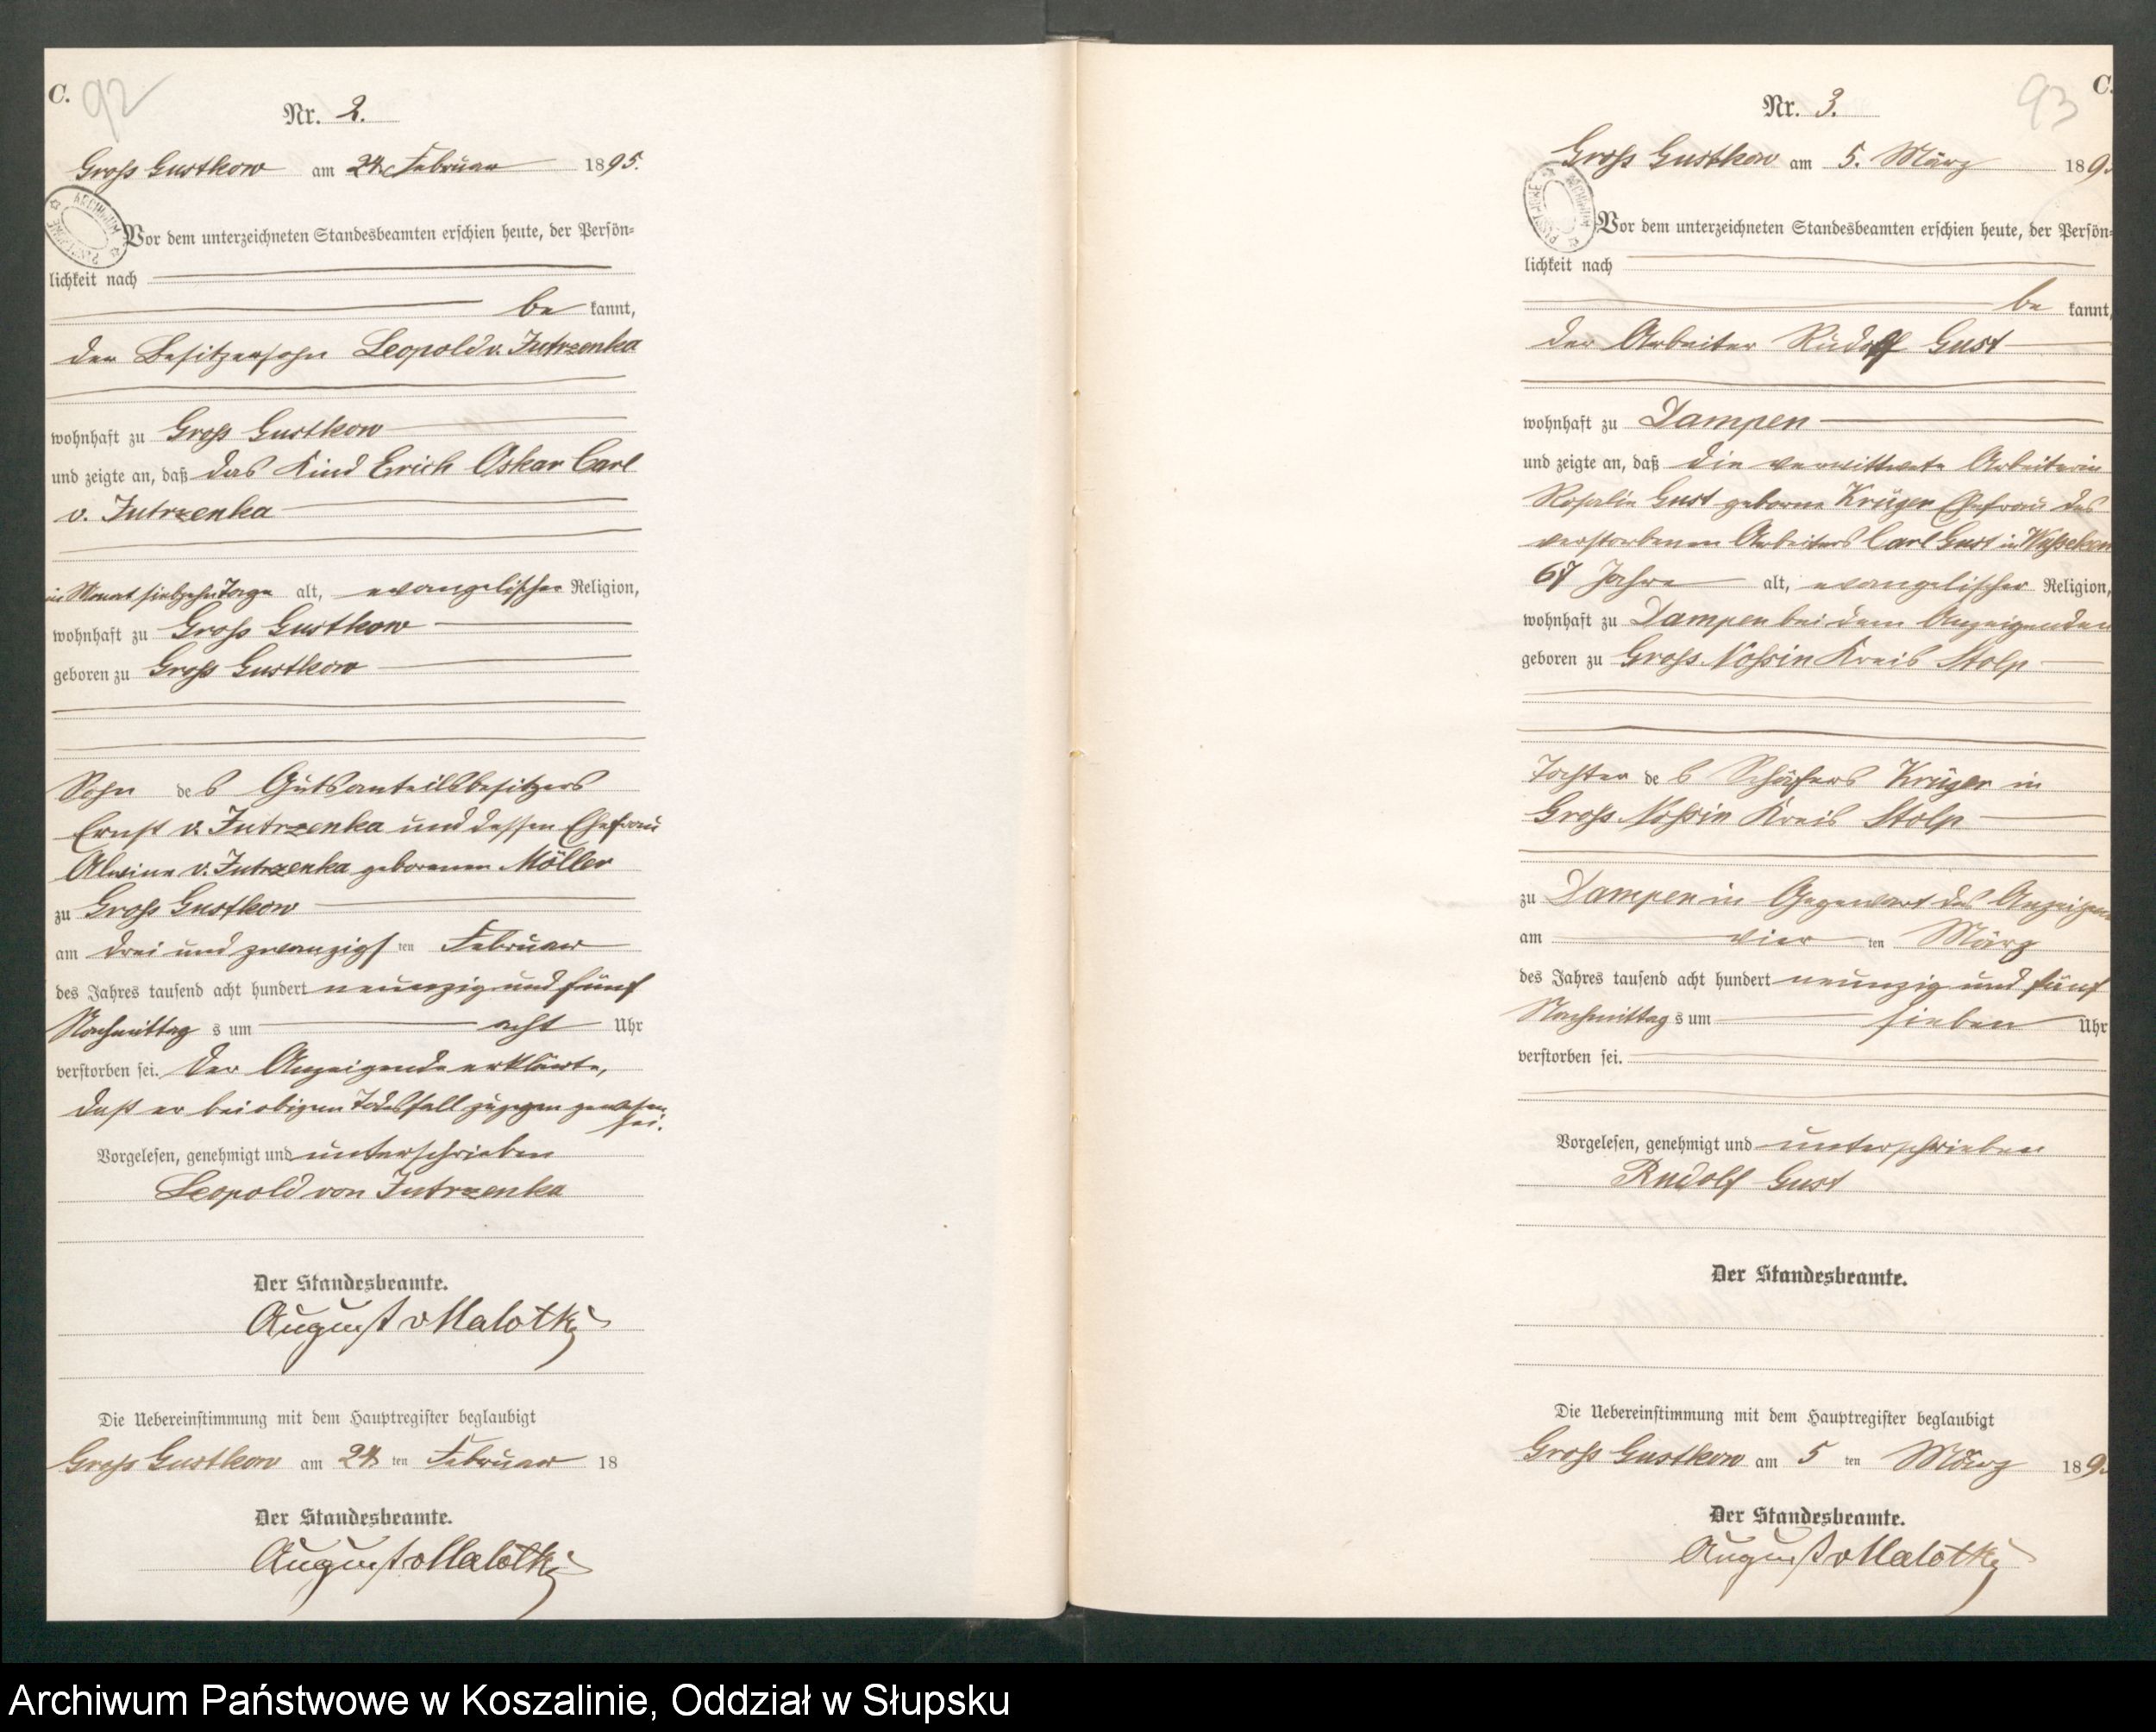 C.
92
Nr. 2.
Gross Gustkow am 24. Februar 1895.
Vor dem unterzeichneten Standesbeamten erschien heute, der Persön-
lichkeit nach
be kannt,
der Besitzersohn Leopold v. Jutrzenka
wohnhaft zu Gross Gustkow
und zeigte an, daß das Kind Erich Oskar Carl
v. Jutrzenka
ein Monat siebzehn Tage alt, evangelischer Religion,
wohnhaft zu Gross Gustkow
geboren zu Gross Gustkow
Sohn des Gutsanteilsbesitzers
Ernst v. Jutrzenka und dessen Ehefrau
Alwine v. Jutrzenka geborenen Möller
zu Gross Gustkow
am drei und zwanzigsten Februar
des Jahres tausend acht hundert neunzig und fünf
Nachmittags um acht Uhr
verstorben sei. Der Anzeigende erklärte,
daß er bei obigem Todesfall zugegen gewesen
sei.
Vorgelesen, genehmigt und unterschrieben
Leopold von Jutrzenka
Der Standesbeamte.
August v Malotky
Die Uebereinstimmung mit dem Hauptregister beglaubigt
Gross Gustkow am 24 ten Februar 18
Der Standesbeamte.
August v Malotky
C.
93
Nr. 3.
Gross Gustkow am 5. März 189
Vor dem unterzeichneten Standesbeamten erschien heute, der Persön-
lichkeit nach
be kannt,
der Arbeiter Rudolf Gust
wohnhaft zu Dampen
und zeigte an, daß die verwittwete Arbeiterin
Rosalie Gust geborne Krüger Ehefrau des
verstorbenen Arbeiters Carl Gust in Wusseken
67 Jahre alt, evangelischer Religion,
wohnhaft zu Dampen bei dem Anzeigenden
geboren zu Gross Nossin Kreis Stolp
Tochter des Schäfers Krüger in
Gross Nossin Kreis Stolp
zu Dampen in Gegenwart des Anzeigen
am vier ten März
des Jahres tausend acht hundert neunzig und fünf
Nachmittags um sieben Uhr
verstorben sei.
Vorgelesen, genehmigt und unterschrieben
Rudolf Gust
Der Standesbeamte.
Die Uebereinstimmung mit dem Hauptregister beglaubigt
Gross Gustkow am 5 ten März 189
Der Standesbeamte.
August v Malotky
Archiwum Państwowe w Koszalinie, Oddział w Słupsku